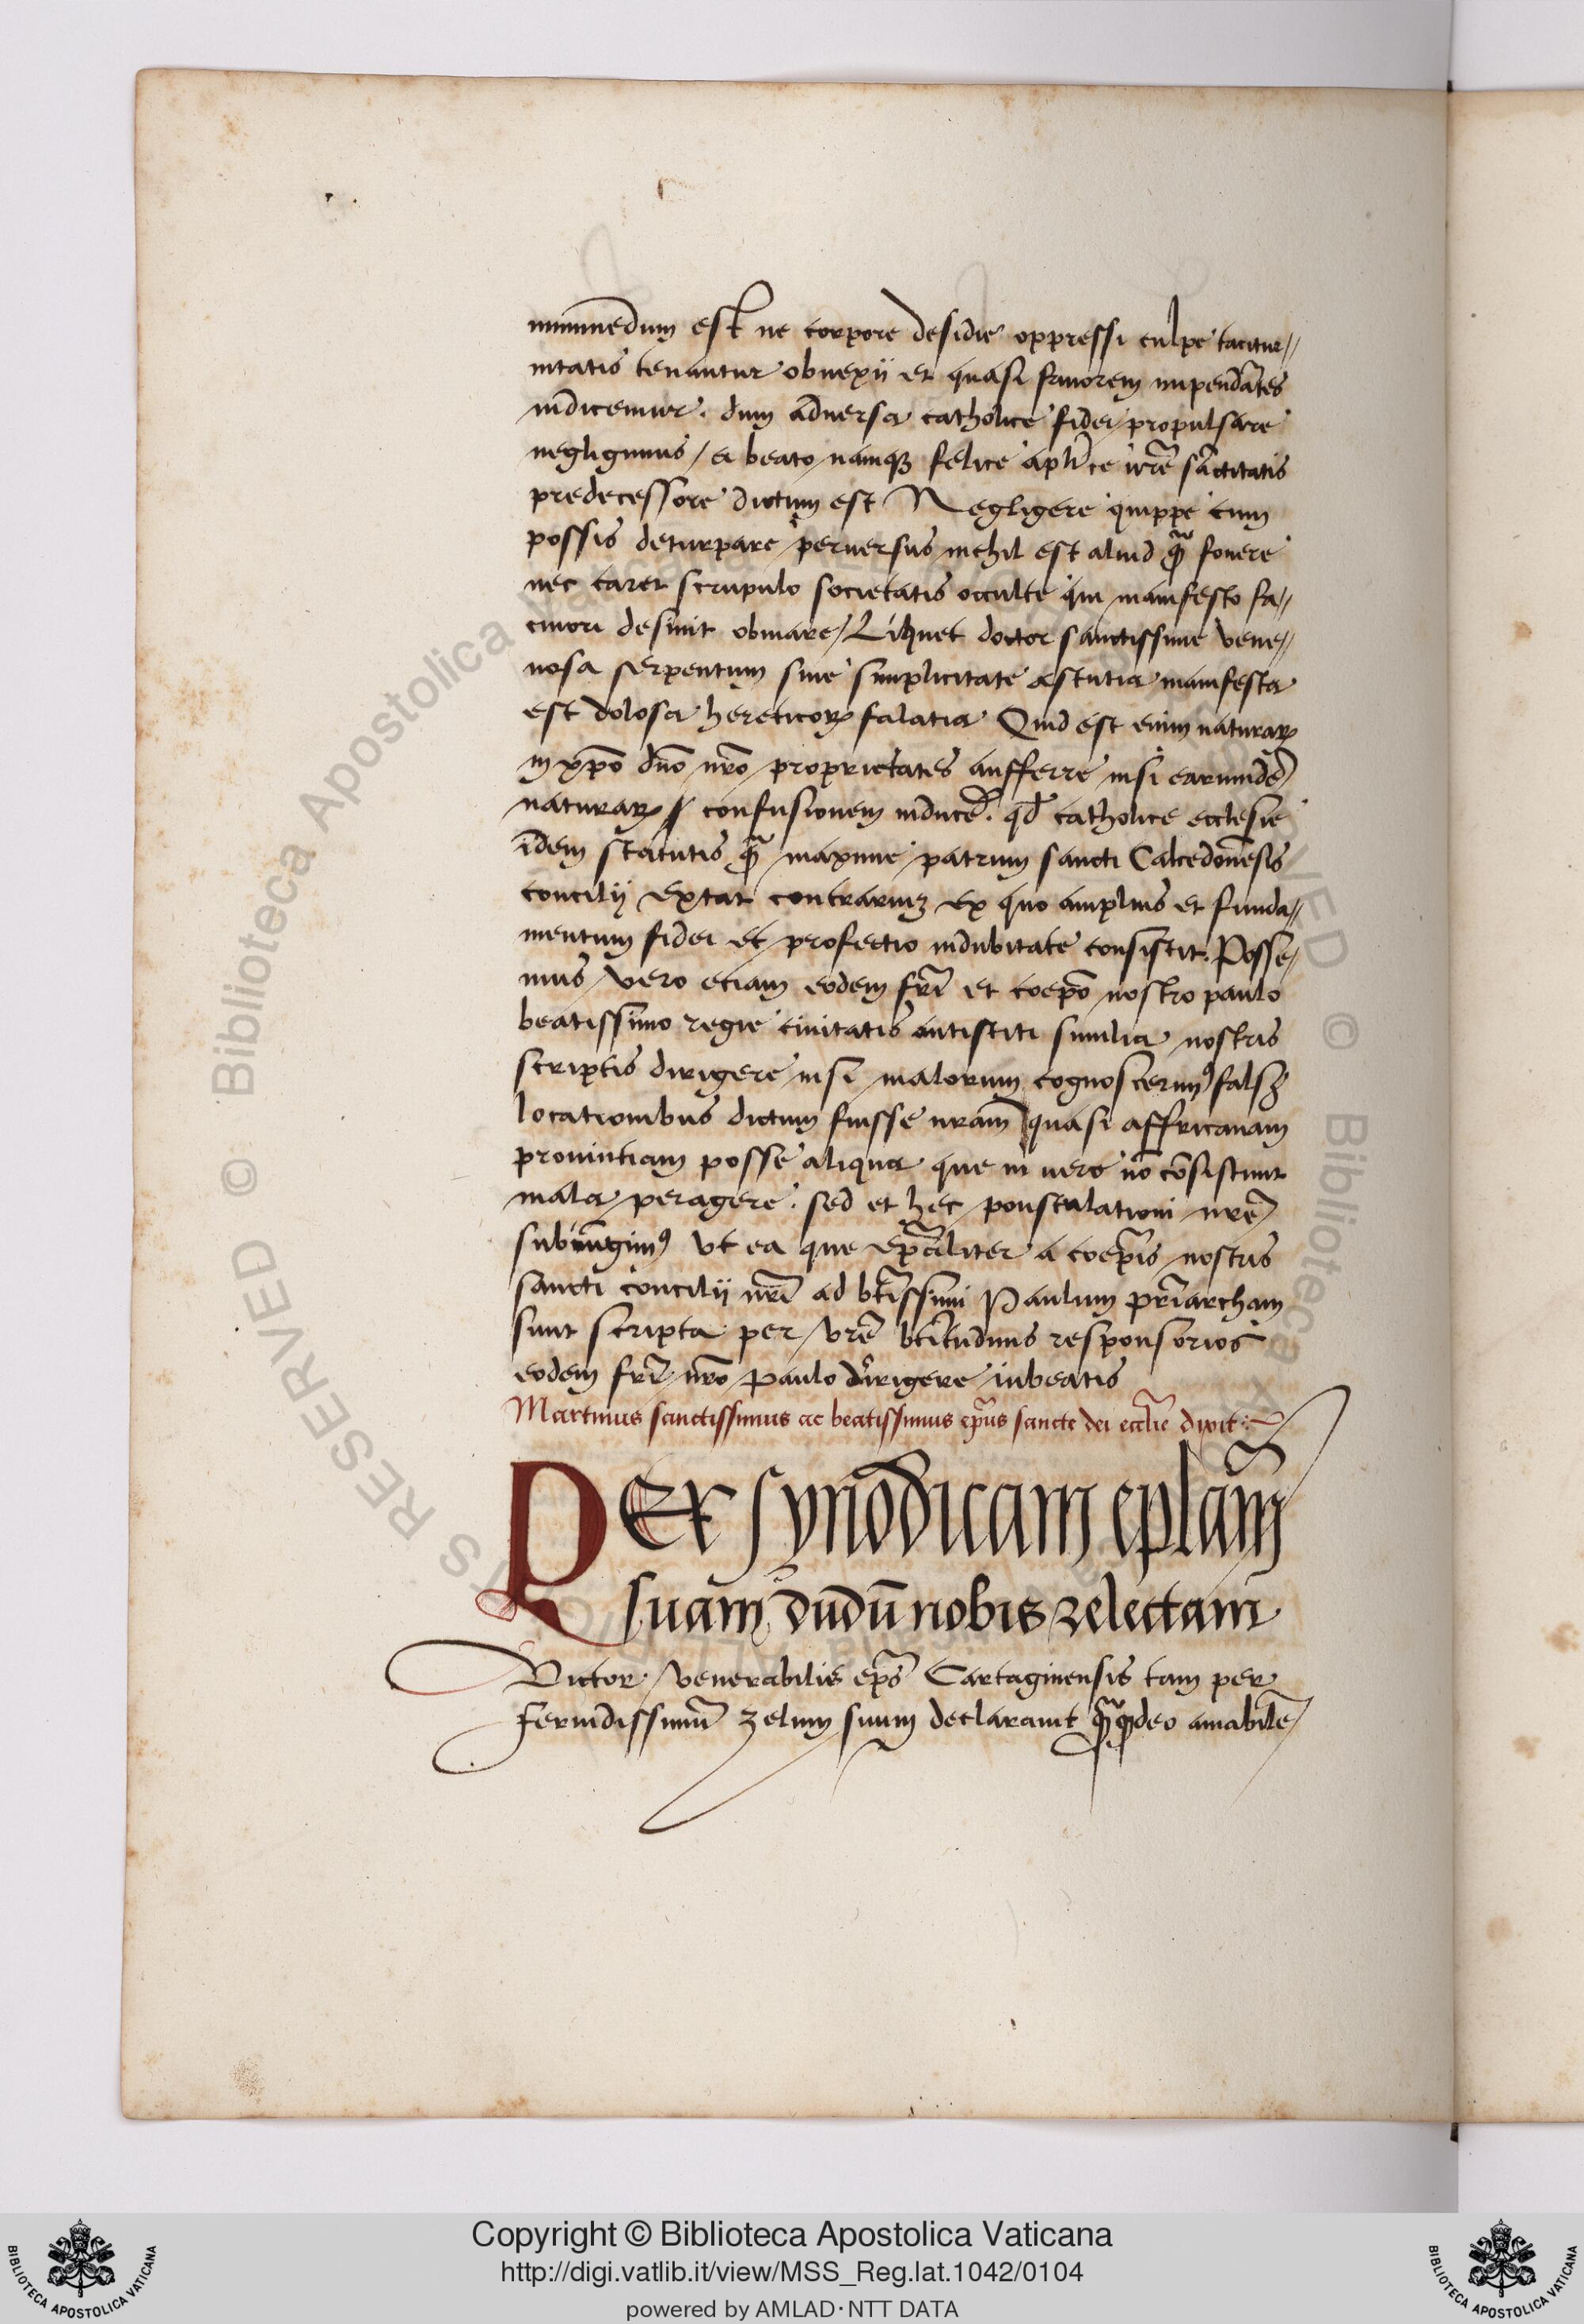 nimmendum est ne torpore desidie oppressi culpe tacitur//
nitatis tenantur obnexii et quasi fauorem impendātes
iudicemur . dum aduersa catholice fidei propulsare
negligimus / a beato namqꝫ felice aplice vr̄e sāctitatis
predecessore dictum est Negligere quippe cum
possis deturpare peruersus nichil est aliud qꝫ̄ fouere
nec caret scrupulo societatis occulte qui manifesto fa//
cinori desinit obuiare / Liquet doctor sanctissime vene//
nosa serpentum siue simplicitate astutia manifesta
est dolosa hereticorꝝ falatia Quid est enim naturarꝝ
in xp̄o dn̄o nr̄o proprietates aufferre nisi earumdē
naturarꝝ confusionem inducē . qd̄ catholice ecclesie
idem statutis maxime patrum sancti Calcedonēsis
concilij extat contrariuꝫ ex quo amplius et funda//
mentum fidei et profectio indubitate consistit . Posse/
mus vero etiam eodem fr̄i et coep̄o nostro paulo
beatissimo regie ciuitatis antistiti similia nostris
scriptis dirigere nisi malorum cognoscerimꝰ fals̄
locationibus dictum fuisse nr̄am quasi affricanam
prouintiam posse aliqua que in vero nō cōsistunt
mala peragere . sed et hec ponstulationi nr̄e
subiūgimꝰ vt ea que epāliter a coep̄is nostris
sancti concilii nr̄i ad btīssimi Paulum pr̄iarcham
sunt scripta per vr̄e btītudinis responsorios
eodem fr̄i nr̄o Paulo dirigere iubeatis
Martinus sanctissimus ac beatissimus ep̄us sancte dei ecclīe dixit :~
PEr synodicam eplām
suam dudū nobis relectam
Victor venerabilis ep̄s Cartaginensis tam per
feruidissimū zelum suum declarauit deo amabilē
© Biblioteca Apostolica Vaticana
Copyright © Biblioteca Apostolica Vaticana
http://digi.vatlib.it/view/MSS_Reg.lat.1042/0104
powered by AMLAD·NTT DATA
BIBLIOTECA APOSTOLICA VATICANA
BIBLIOTECA APOSTOLICA VATICANA